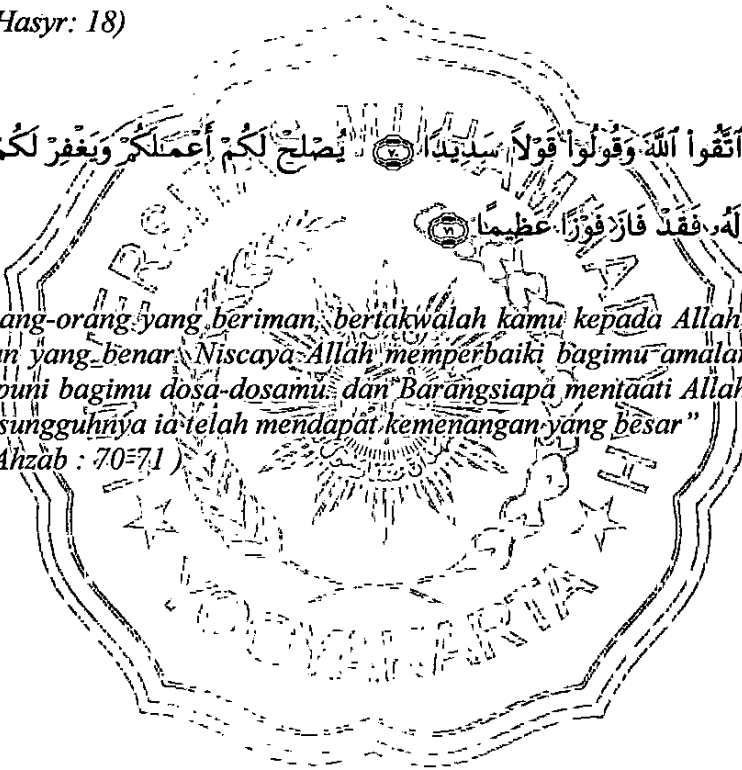 Hasyr: 18)
ٱتَّقُوا۟ ٱللَّهَ وَقُولُوا۟ قَوْلًا سَدِيدًا ۝٧٠ يُصْلِحْ لَكُمْ أَعْمَـٰلَكُمْ وَيَغْفِرْ لَكُمْ
فَقَدْ فَازَ فَوْزًا عَظِيمًا ۝٧١
ang-orang yang beriman, bertakwalah kamu kepada Allah
n yang benar. Niscaya Allah memperbaiki bagimu amalan
puni bagimu dosa-dosamu. dan Barangsiapa mentaati Allah
sungguhnya ia telah mendapat kemenangan yang besar”
Ahzab : 70-71 )
YOGYAKARTA